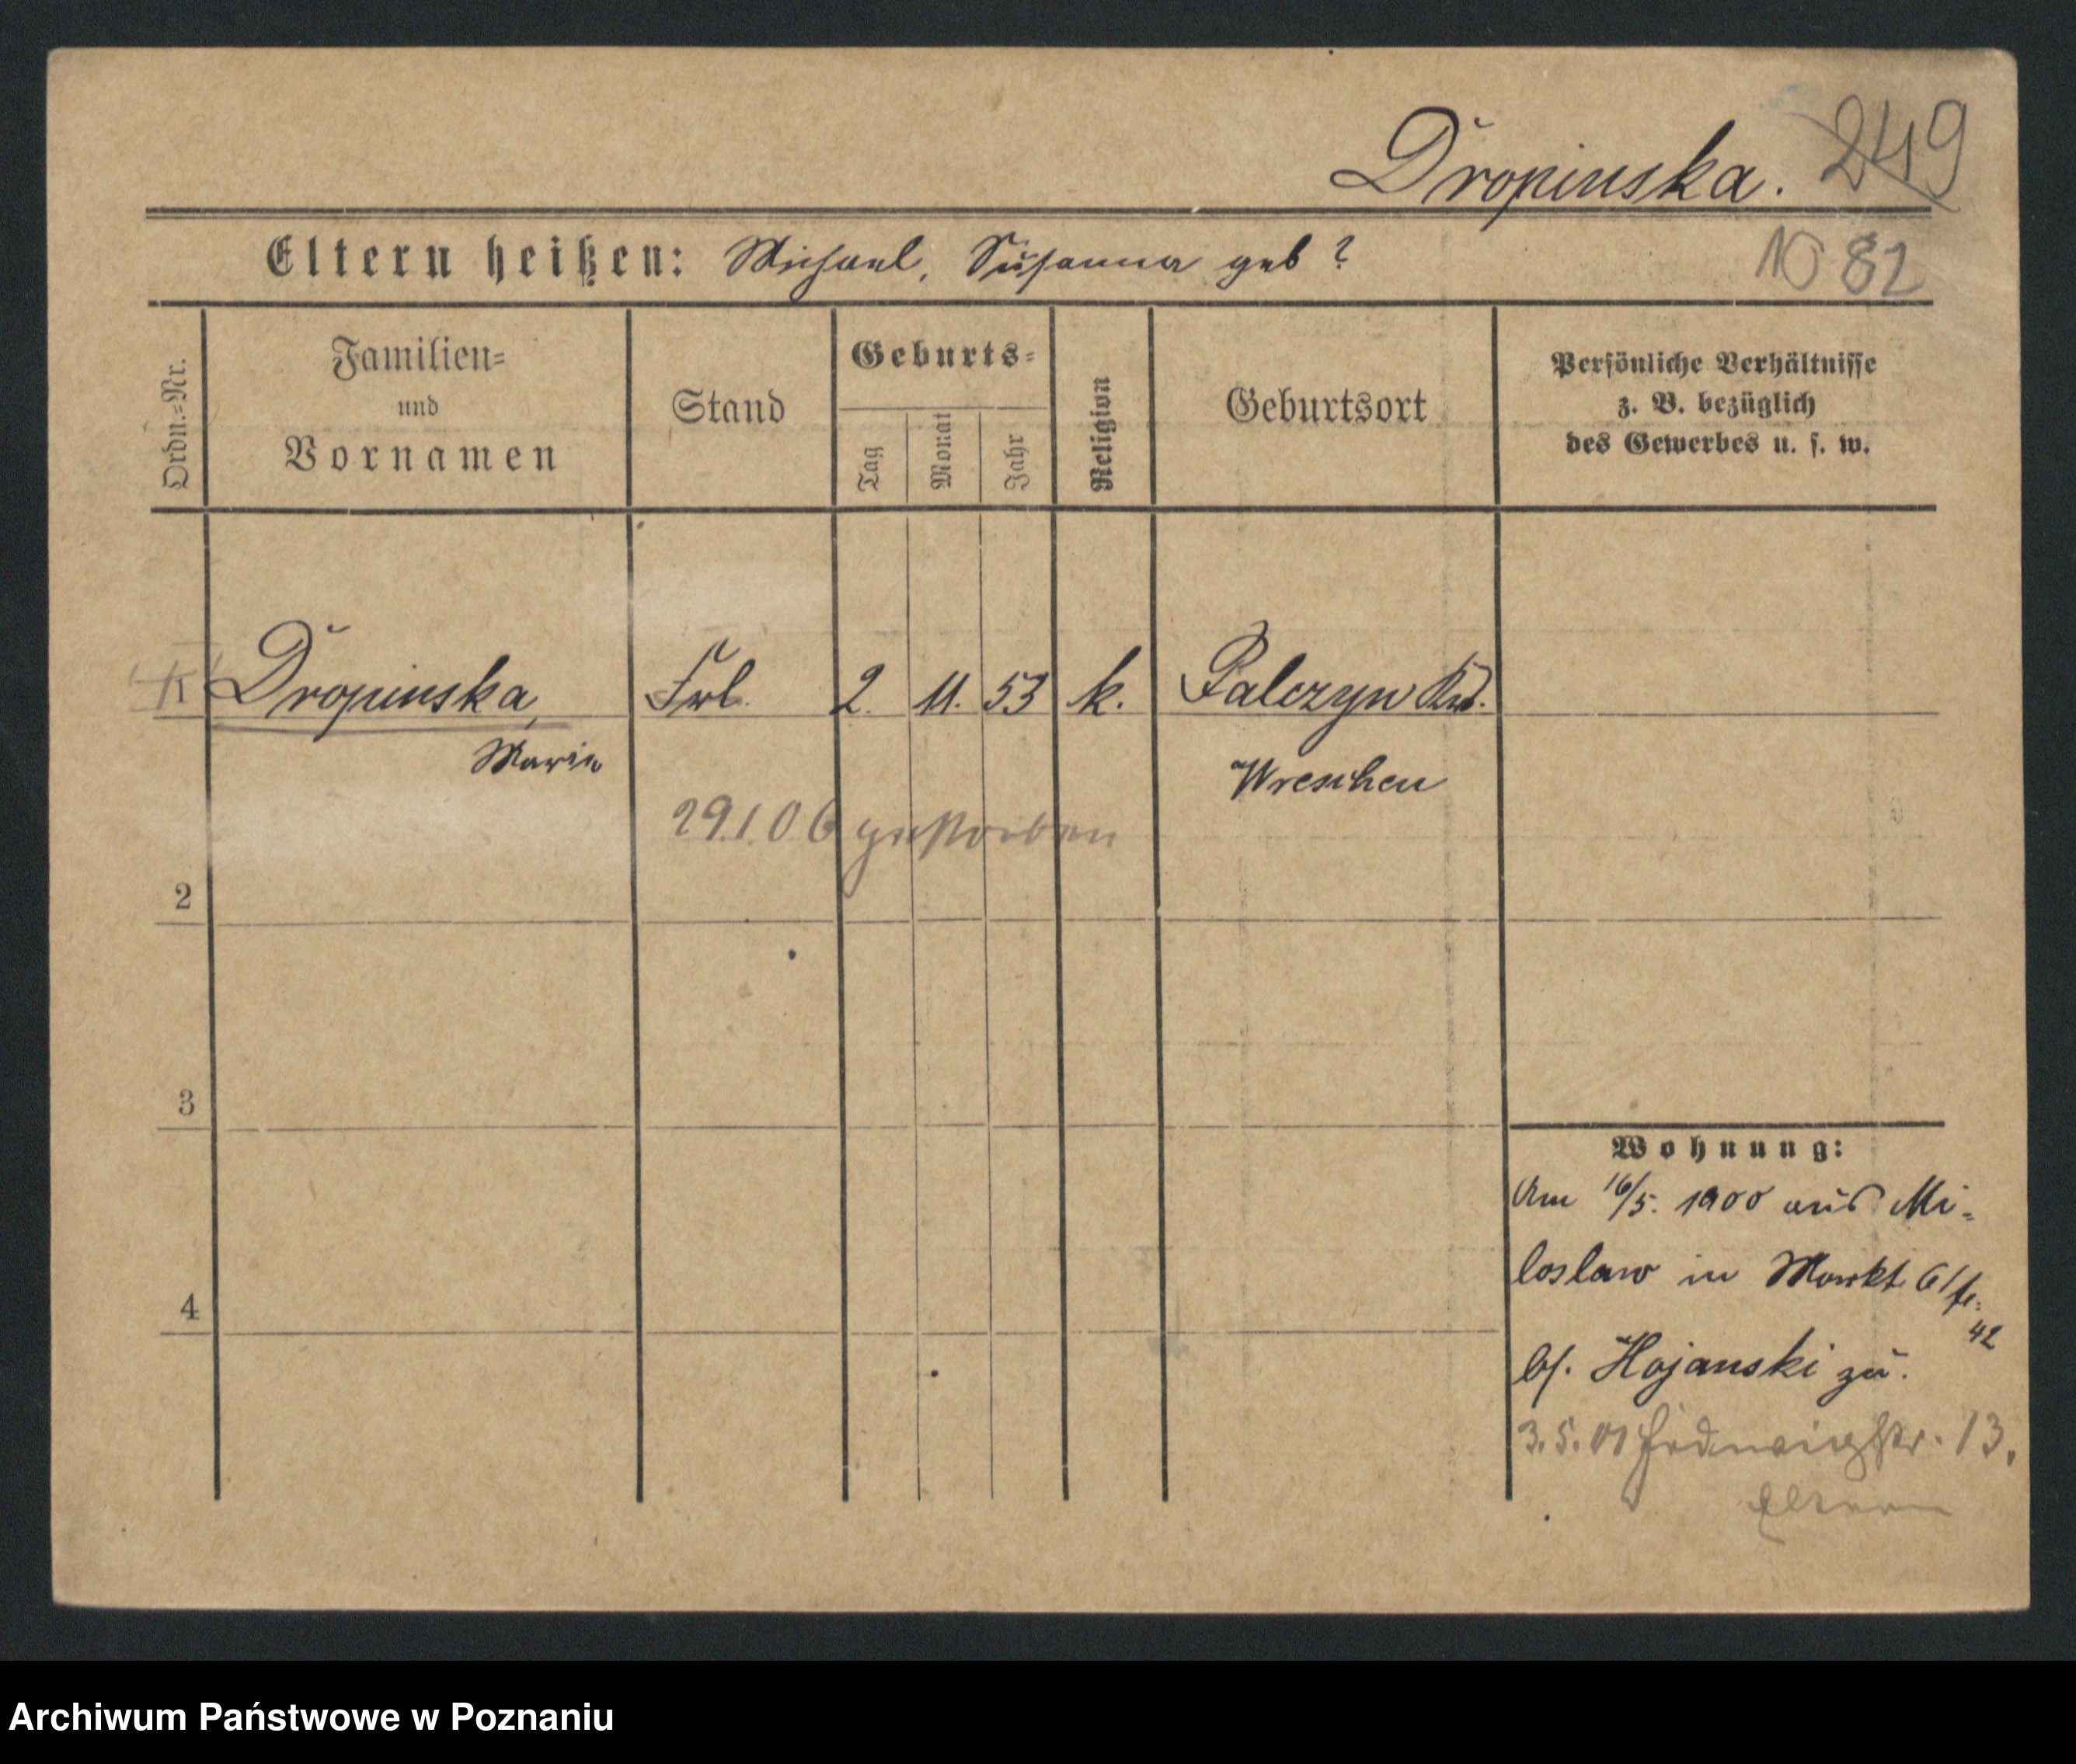 Dropinska. 249
Eltern heißen: Michael, Susanna geb ?
10 82
Ordn.=Nr.
Familien=
und
Vornamen
Stand
Geburts=
Tag
Monat
Jahr
Religion
Geburtsort
Persönliche Verhältnisse
z. B. bezüglich
des Gewerbes u. s. w.
1 Dropinska, Frl. 2. 11. 53 k. Palczyn Krs.
Marie
Wreschen
29.1.06 gestorben
2
3
4
Wohnung:
Am 16/5. 1900 aus Mi=
loslaw in Markt
42
bei Hojanski zu.
3.5.01 Hedwigstr. 13.
Eltern
Archiwum Państwowe w Poznaniu